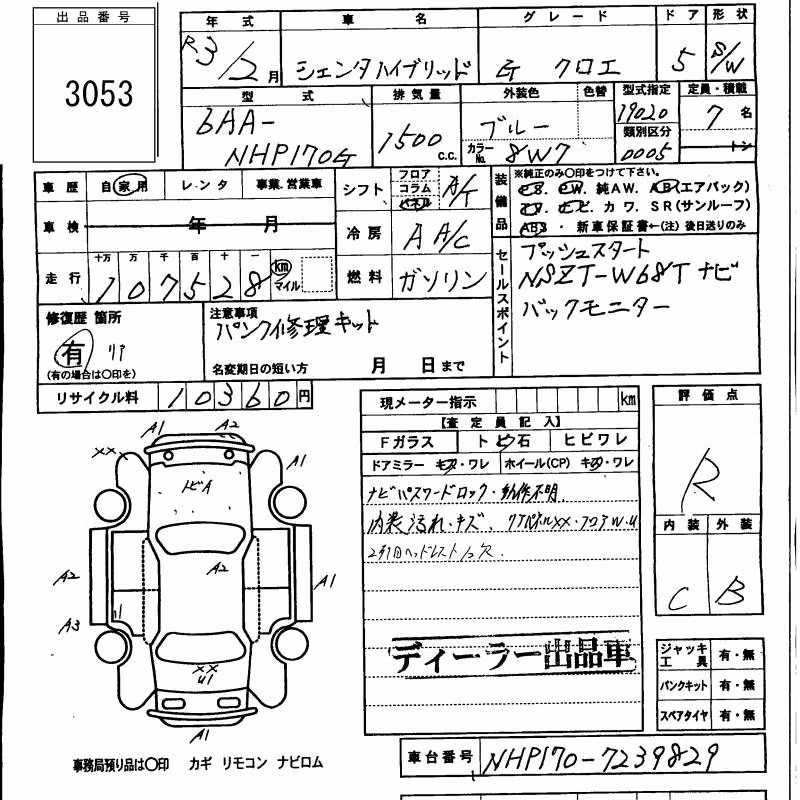 出品番号
3053
年式 車名 グレード ドア 形状
R3/2月 シエンタハイブリッド G クロエ 5 S/W
型式 排気量 外装色 色替 型式指定 定員・積載
6AA-NHP170G 1500 c.c. ブルー 19020 7名
カラーNo. 8W7 類別区分 0005 トン
車歴 自家用 レンタ 事業.営業車
シフト フロア コラム パネル A/T
装備品 ※純正のみ〇印をつけて下さい。
PS. PW. 純AW. AB(エアバック)
TV. ナビ. カワ. SR(サンルーフ)
ABS ・ 新車保証書←(注)後日送りのみ
車検 年 月
冷房 A A/C
走行 十万 万 千 百 十 一
107528 km マイル
燃料 ガソリン
セールスポイント
プッシュスタート
NSZT-W68T ナビ
バックモニター
修復歴 箇所
有 リア
(有の場合は〇印を)
注意事項
パンク修理キット
名変期日の短い方 月 日まで
リサイクル料 10360円
現メーター指示 km
【査定員記入】
Fガラス トビ石 ヒビワレ
ドアミラー キズ・ワレ ホイール(CP) キズ・ワレ
ナビパスワードロック・動作不明
内装汚れ・キズ、リアパネルXX・フロアW.U
2列目ヘッドレスト1ヶ欠.
ディーラー出品車
評価点
R
内装 外装
C B
ジャッキ工具 有・無
パンクキット 有・無
スペアタイヤ 有・無
A1 A2
XX A1
トビA
A2 A2 A1
A3
XX
U1
A1
事務局預り品は〇印 カギ リモコン ナビロム
車台番号 NHP170-7239829